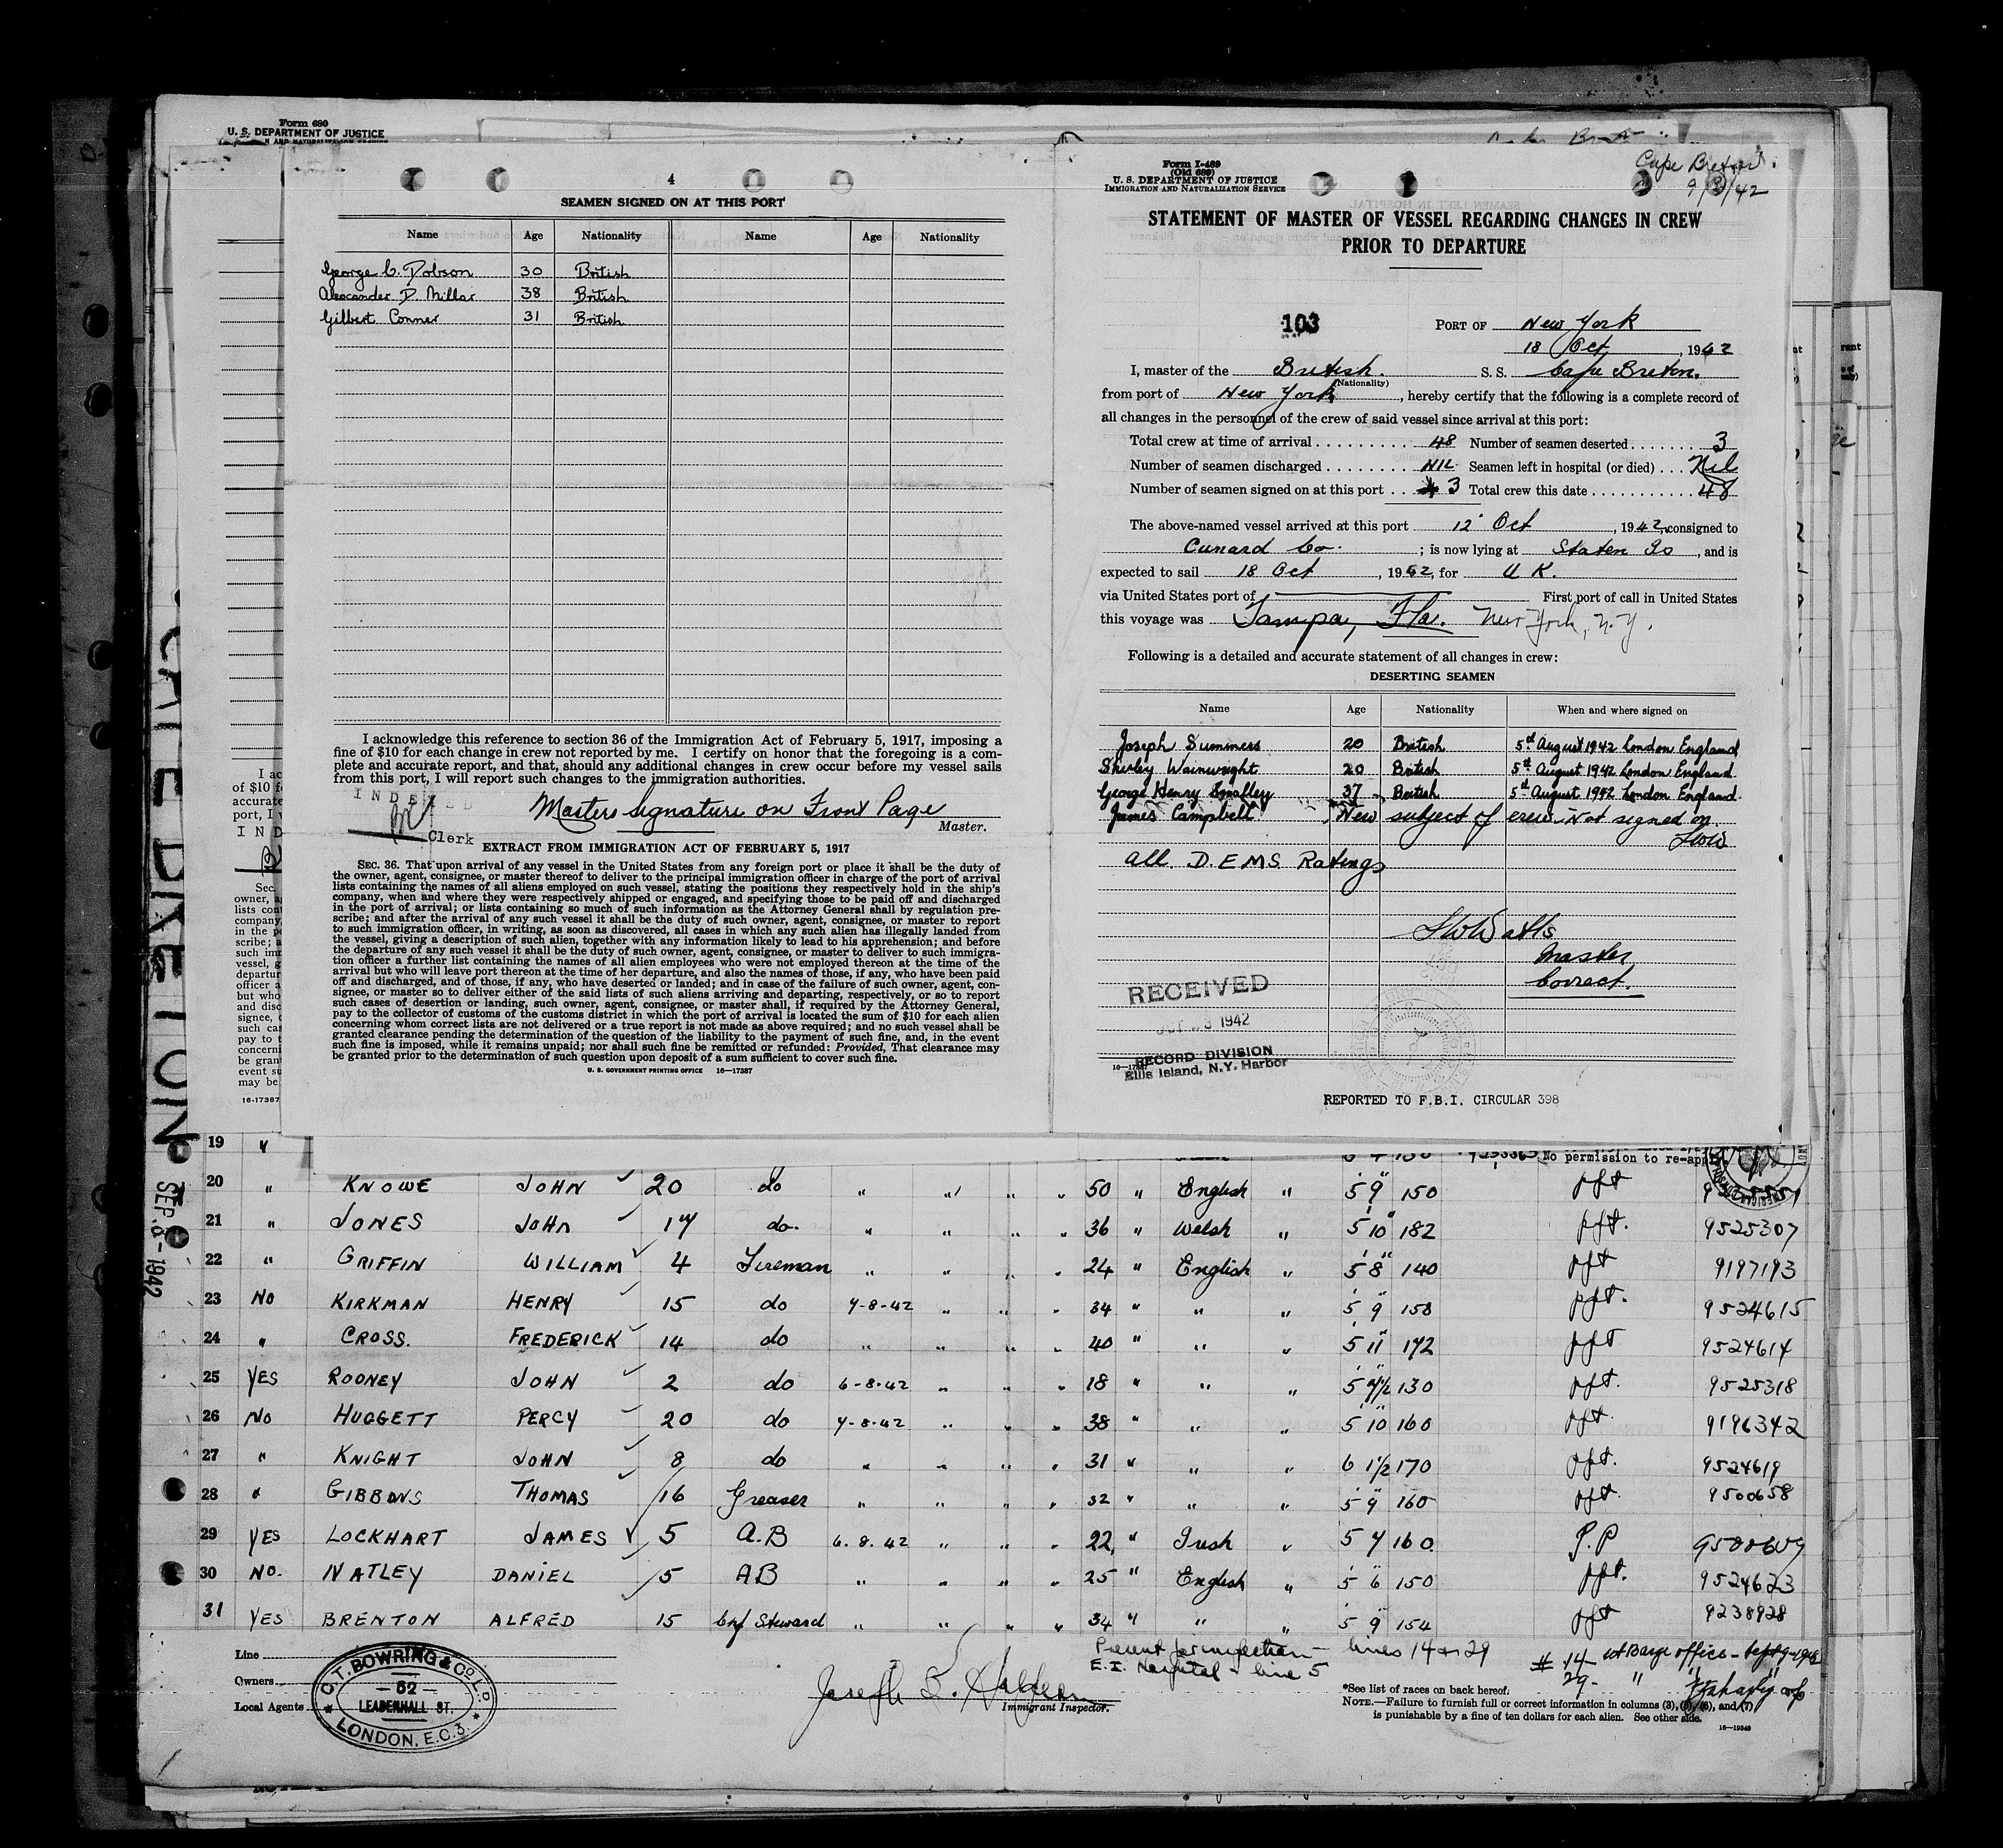 Form 680
U. S. DEPARTMENT OF JUSTICE
4
SEAMEN SIGNED ON AT THIS PORT
Name Age Nationality Name Age Nationality
George C. Dobson 30 British
Alexander D. Millar 38 British
Gilbert Conner 31 British
I acknowledge this reference to section 36 of the Immigration Act of February 5, 1917, imposing a
fine of $10 for each change in crew not reported by me. I certify on honor that the foregoing is a com-
plete and accurate report, and that, should any additional changes in crew occur before my vessel sails
from this port, I will report such changes to the immigration authorities.
INDEXED
Clerk
Masters Signature on Front Page
Master.
EXTRACT FROM IMMIGRATION ACT OF FEBRUARY 5, 1917
SEC. 36. That upon arrival of any vessel in the United States from any foreign port or place it shall be the duty of
the owner, agent, consignee, or master thereof to deliver to the principal immigration officer in charge of the port of arrival
lists containing the names of all aliens employed on such vessel, stating the positions they respectively hold in the ship's
company, when and where they were respectively shipped or engaged, and specifying those to be paid off and discharged
in the port of arrival; or lists containing so much of such information as the Attorney General shall by regulation pre-
scribe; and after the arrival of any such vessel it shall be the duty of such owner, agent, consignee, or master to report
to such immigration officer, in writing, as soon as discovered, all cases in which any such alien has illegally landed from
the vessel, giving a description of such alien, together with any information likely to lead to his apprehension; and before
the departure of any such vessel it shall be the duty of such owner, agent, consignee, or master to deliver to such immigra-
tion officer a further list containing the names of all alien employees who were not employed thereon at the time of the
arrival but who will leave port thereon at the time of her departure, and also the names of those, if any, who have been paid
off and discharged, and of those, if any, who have deserted or landed; and in case of the failure of such owner, agent, con-
signee, or master so to deliver either of the said lists of such aliens arriving and departing, respectively, or so to report
such cases of desertion or landing, such owner, agent, consignee, or master shall, if required by the Attorney General,
pay to the collector of customs of the customs district in which the port of arrival is located the sum of $10 for each alien
concerning whom correct lists are not delivered or a true report is not made as above required; and no such vessel shall be
granted clearance pending the determination of the question of the liability to the payment of such fine, and, in the event
such fine is imposed, while it remains unpaid; nor shall such fine be remitted or refunded: Provided, That clearance may
be granted prior to the determination of such question upon deposit of a sum sufficient to cover such fine.
U. S. GOVERNMENT PRINTING OFFICE 16—17387
Form I-489
(Old 689)
U. S. DEPARTMENT OF JUSTICE
IMMIGRATION AND NATURALIZATION SERVICE
Cape Breton
STATEMENT OF MASTER OF VESSEL REGARDING CHANGES IN CREW
PRIOR TO DEPARTURE
103
PORT OF New York
18 Oct, 1942
I, master of the British. S. S. Cape Breton.
(Nationality)
from port of New York, hereby certify that the following is a complete record of
all changes in the personnel of the crew of said vessel since arrival at this port:
Total crew at time of arrival 48 Number of seamen deserted 3
Number of seamen discharged NIL Seamen left in hospital (or died) Nil
Number of seamen signed on at this port 3 Total crew this date 48
The above-named vessel arrived at this port 12 Oct, 1942, consigned to
Cunard Co. ; is now lying at Staten Is, and is
expected to sail 18 Oct, 1942, for U K.
via United States port of First port of call in United States
this voyage was Tampa, Fla. New York, N.Y.
Following is a detailed and accurate statement of all changes in crew:
DESERTING SEAMEN
Name Age Nationality When and where signed on
Joseph Summers 20 British 5th August 1942 London England
Shirley Wainwright 20 British 5th August 1942 London England
George Henry Smalley 37 British 5th August 1942 London England
James Campbell New subject of crew - Not signed on
all D.E.M.S Ratings
Watts
Master
Correct.
RECEIVED
1942
RECORD DIVISION
Ellis Island, N.Y. Harbor
16—17387
REPORTED TO F.B.I. CIRCULAR 398
CAPE BRETON
SEP. 8 - 1942
No permission to re-apply
19 "
20 " KNOWE JOHN 20 do " " " " 50 " English " 5 9 150 pft
21 " JONES JOHN 17 do. " " " " 36 " Welsh " 5 10 182 pft. 9525307
22 " GRIFFIN WILLIAM 4 Fireman " " " " 24 " English " 5 8 140 pft 9197193
23 NO KIRKMAN HENRY 15 do 7-8-42 " " " 34 " " " 5 9 158 pft. 9524615
24 " CROSS. FREDERICK 14 do " " " " 40 " " " 5 11 172 pft 9524614
25 YES ROONEY JOHN 2 do 6-8-42 " " " 18 " " " 5 7½ 130 pft. 9525318
26 NO HUGGETT PERCY 20 do 7-8-42 " " " 38 " " " 5 10 160 pft. 9196342
27 " KNIGHT JOHN 8 do " " " " 31 " " " 6 1/2 170 pft. 9524619
28 " GIBBONS THOMAS 16 Greaser " " " " 32 " " " 5 9 160 pft. 9500658
29 YES LOCKHART JAMES 5 A.B 6.8.42 " " " 22 " Irish " 5 7 160 P.P 9500609
30 NO. NATLEY DANIEL 5 AB " " " " 25 " English " 5 6 150 pft. 9524623
31 YES BRENTON ALFRED 15 Steward " " " " 34 " " " 5 9 154 pft 9238928
Line
Owners
Local Agents
C. T. BOWRING & CO. LD.
52
LEADENHALL ST.
LONDON, E.C.3.
Immigrant Inspector.
Present for inspection - lines 14 & 29
E.I. Hospital - line 5
# 14 - at Barge office - Sept 9-1942
29 - " "
*See list of races on back hereof.
NOTE.—Failure to furnish full or correct information in columns (3), (5), (6), and (7)
is punishable by a fine of ten dollars for each alien. See other side.
16—19349